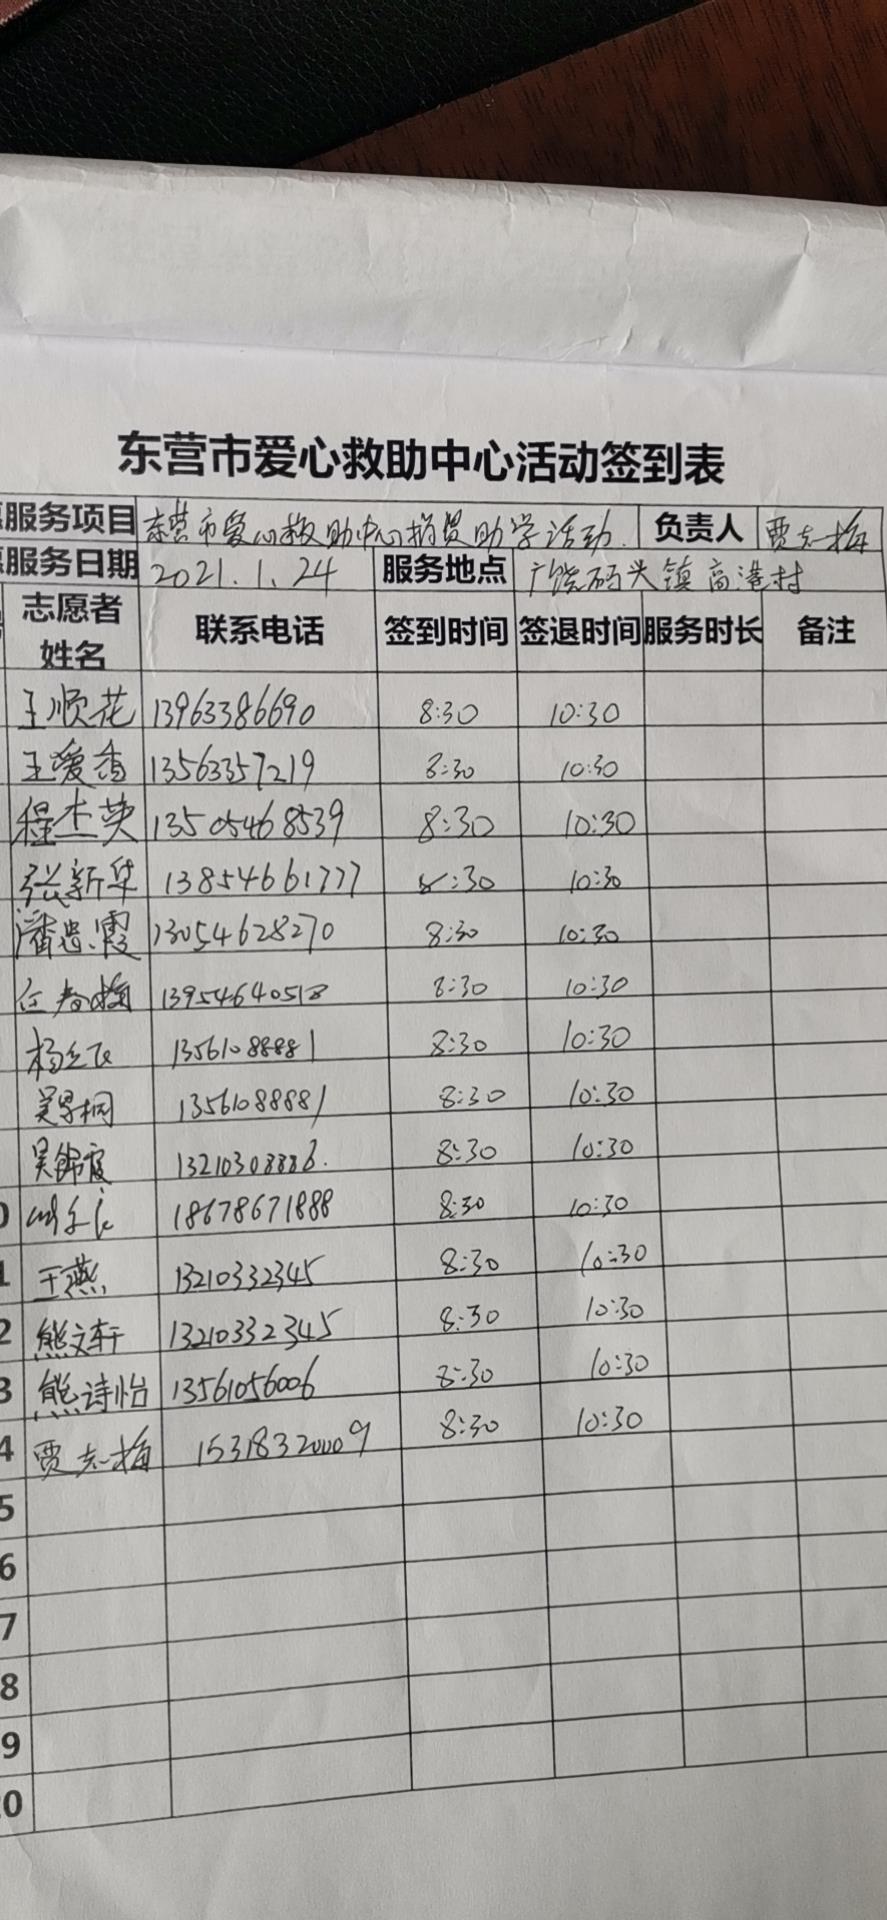 东营市爱心救助中心活动签到表
服务项目 东营市爱心救助中心捐赀助学活动. 负责人 贾志梅
服务日期 2021.1.24 服务地点 广饶码头镇高港村
志愿者姓名 联系电话 签到时间 签退时间 服务时长 备注
王顺花 13963386690 8:30 10:30
王爱香 13563357219 8:30 10:30
程杰英 13505468539 8:30 10:30
张新华 13854661777 8:30 10:30
潘忠霞 13054628270 8:30 10:30
任春梅 13954640518 8:30 10:30
13561088881 8:30 10:30
13561088881 8:30 10:30
吴锦霞 13210308886. 8:30 10:30
0 18678671888 8:30 10:30
1 王燕 13210332345 8:30 10:30
2 熊文轩 13210332345 8:30 10:30
3 熊诗怡 13561056006 8:30 10:30
4 贾志梅 15318320009 8:30 10:30
5
6
7
8
9
20